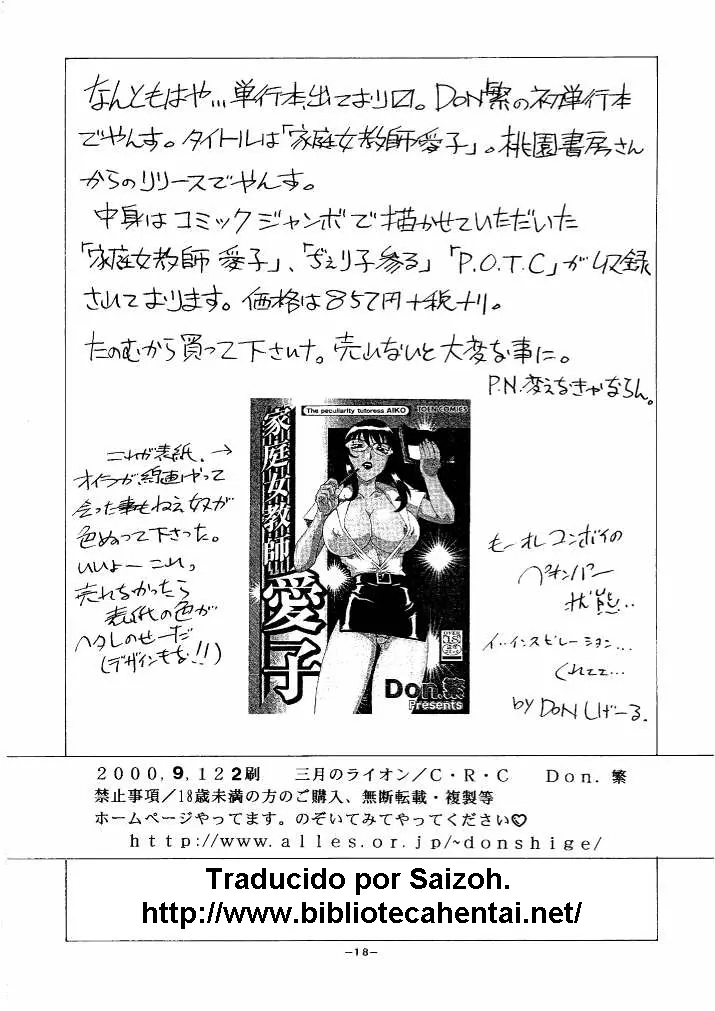 なんともはや,,,単行本出ております。DON繁の初単行本
でやんす。タイトルは「家庭女教師愛子」。桃園書房さん
からのリリースでやんす。
中身はコミックジャンボで描かせていただいた
「家庭女教師 愛子」、「ぢぇり子参る」「P.O.T.C」が収録
されております。価格は857円+税ナリ。
たのむから買って下さいナ。売れないと大変な事に。
P.N.変えなきゃならん。
これが表紙、→
オイラが線画はやって
会った事もねえ奴が
色ぬって下さった。
いいよーこれっ
売れなかったら
表紙の色が
ヘタレのせーだ
(デザインもな!!)
The peculiarity tutoress AIKO
TOEN COMICS
家庭女教師
愛子
Don.繁
Presents
もーオレコンボイの
ペチャンパー
状態..
イ..インスピレーション...
くれてて...
by DON しげーる.
2000,9,12 2刷 三月のライオン/C・R・C Don. 繁
禁止事項/18歳未満の方のご購入、無断転載・複製等
ホームページやってます。のぞいてみてやってください♡
http://www.alles.or.jp/~donshige/
Traducido por Saizoh.
http://www.bibliotecahentai.net/
-18-